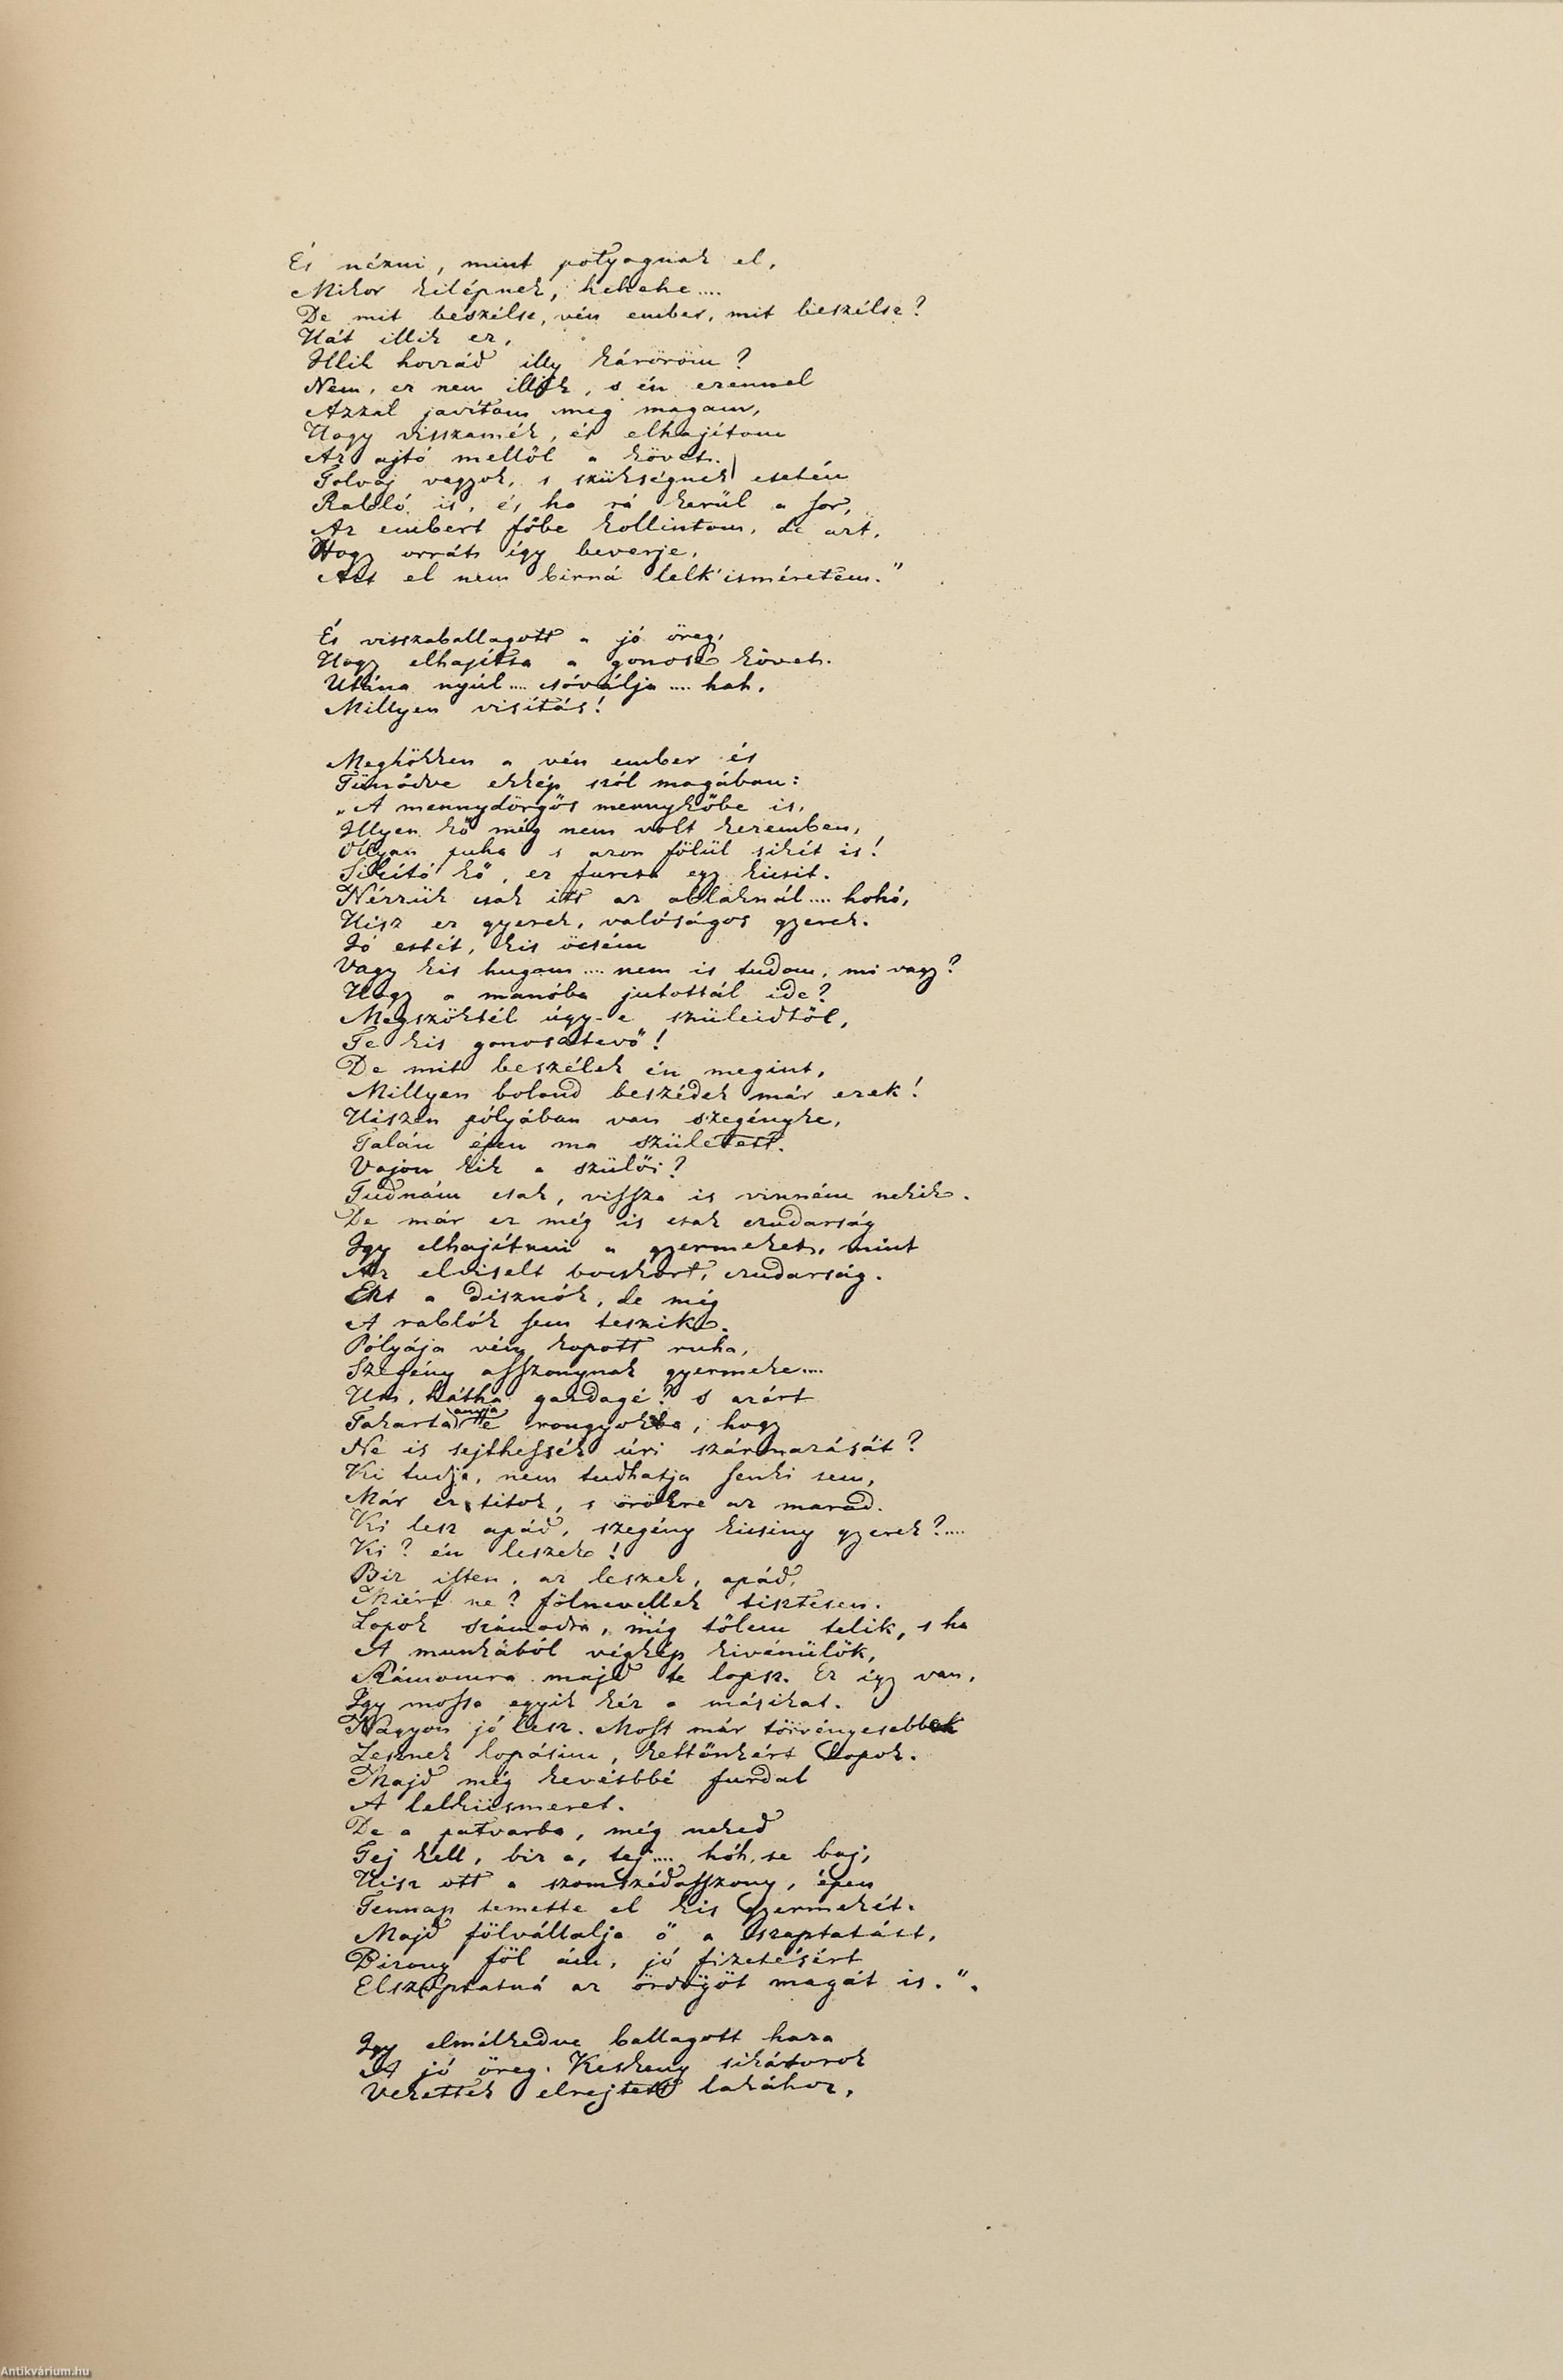 És nézni, mint potyognak el,
Mikor kilépnek, hehehe....
De mit beszélsz, vén ember, mit beszélsz?
Hát illik ez,
Illik hozzád illy káröröm?
Nem, ez nem illik, s én ezennel
Azzal javítom meg magam,
Hogy visszamék, és elhajítom
Az ajtó mellől a követ.
Tolvaj vagyok, s szükségnek esetén
Rabló is, és, ha rá kerül a sor,
Az embert főbe kollintom, de azt,
Hogy orrát így beverje,
Azt el nem birná lelk'isméretem."
És visszaballagott a jó öreg,
Hogy elhajítsa a gonosz követ.
Utána nyúl.... csóválja.... hah,
Millyen visítás!
Meghökken a vén ember és
Tünődve ekkép szól magában:
„A mennydörgős mennykőbe is,
Illyen kő még nem volt kezemben,
Ollyan puha s azon fölül sikít is!
Sikító kő, ez furcsa egy kicsit.
Nézzük csak itt az ablaknál.... hohó,
Hisz ez gyerek, valóságos gyerek.
Jó estét, kis öcsém
Vagy kis hugom.... nem is tudom, mi vagy?
Hogy a manóba jutottál ide?
Megszöktél úgy-e szüleidtől,
Te kis gonosztevő!
De mit beszélek én megint,
Millyen bolond beszédek már ezek!
Hiszen pólyában van szegényke,
Talán épen ma született.
Vajon kik a szülői?
Tudnám csak, vissza is vinném nekik.
De már ez még is csak czudarság
Igy elhajítani a gyermeket, mint
Az elviselt bocskort, czudarság.
Ezt a disznók, de még
A rablók sem teszik.
Pólyája vén kopott ruha,
Szegény asszonynak gyermeke....
Hm, hátha gazdagé? s azárt
anyja
Takartatta rongyokba, hogy
Ne is sejthessék úri származását?
Ki tudja, nem tudhatja senki sem,
Már ez titok, s örökre az marad.
Ki lesz apád, szegény kicsiny gyerek?....
Ki? én leszek!
Biz isten, az leszek, apád,
Miért ne? fölnevellek tisztesen.
Lopok számodra, míg tőlem telik, s ha
A munkából végkép kivénülök,
Számomra majd te lopsz. Ez így van,
Igy mossa egyik kéz a másikat.
Nagyon jó lesz. Most már törvényesebbek
Lesznek lopásim, kettőnkért lopok.
Majd még kevésbbé furdal
A lelkiismeret.
De a patvarba, még neked
Tej kell, biz a, tej.... hóh, se baj,
Hisz ott a szomszédasszony, épen
Tennap temette el kis gyermekét.
Majd fölvállalja ő a szoptatást,
Bizony föl ám, jó fizetésért
Elszoptatná az ördögöt magát is.".
Igy elmélkedve ballagott haza
A jó öreg. Keskeny sikátorok
Vezettek elrejtett lakához,
Antikvárium.hu